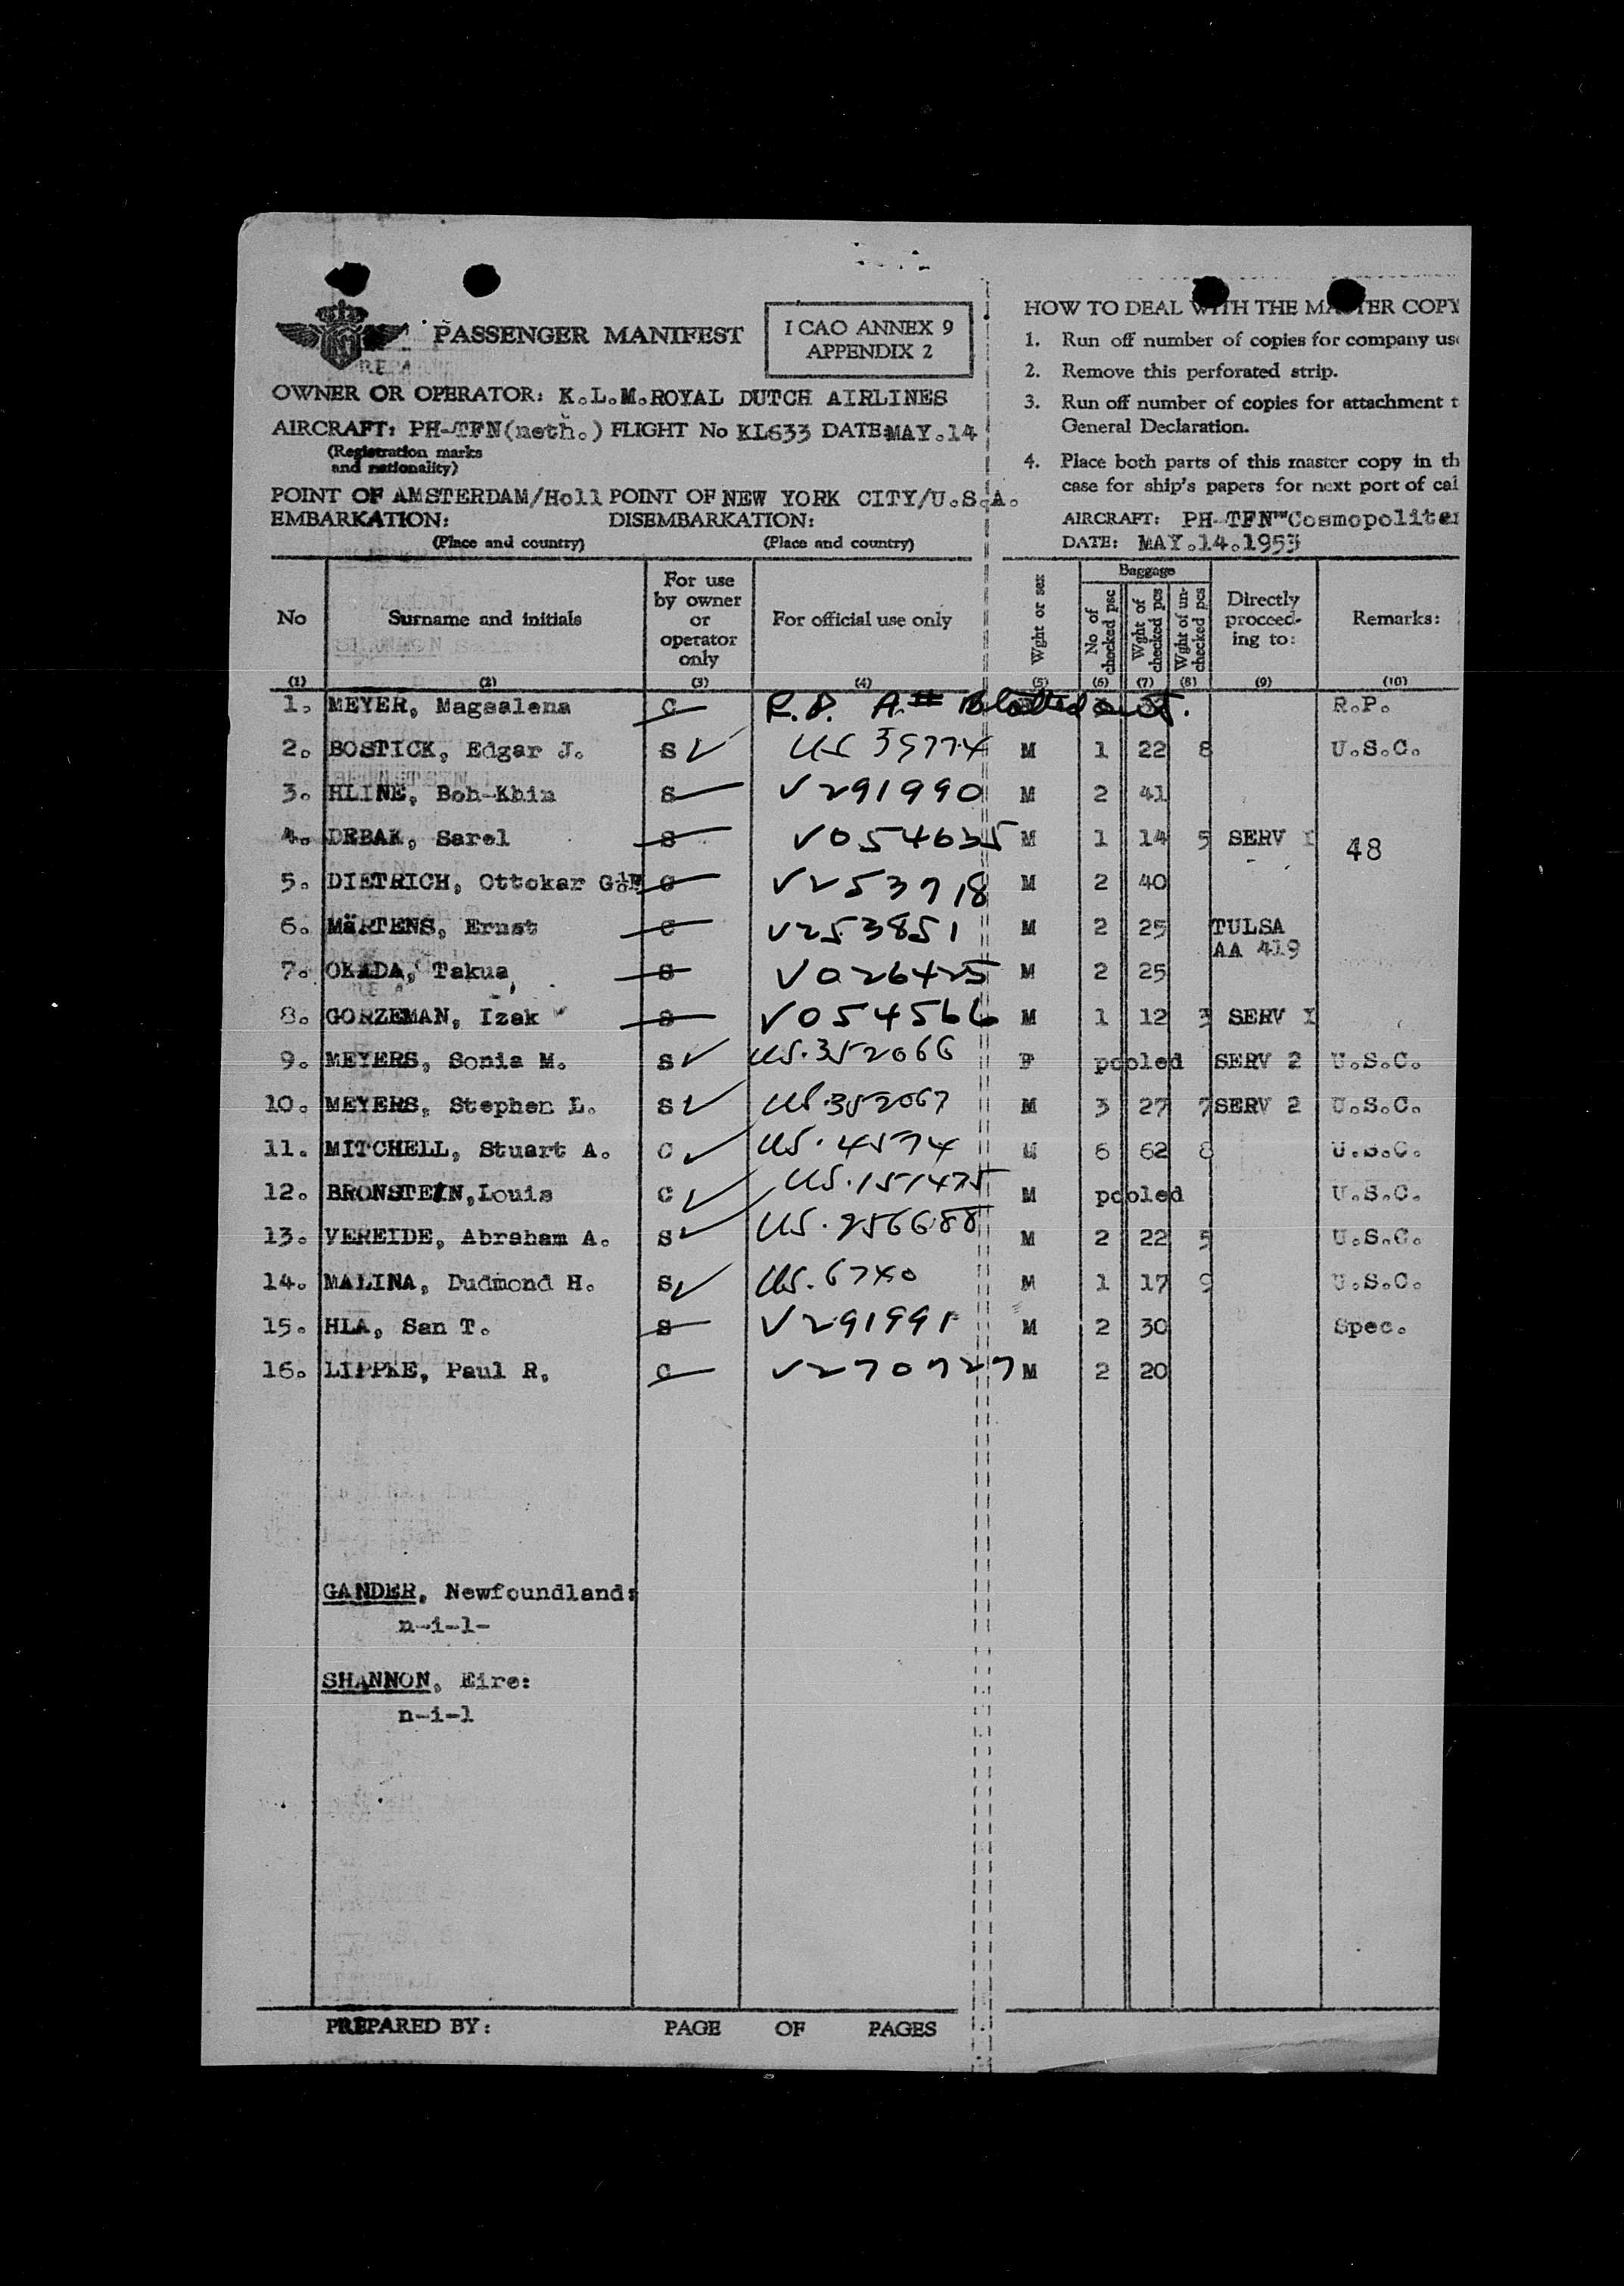 PASSENGER MANIFEST
I CAO ANNEX 9
APPENDIX 2
OWNER OR OPERATOR: K.L.M.ROYAL DUTCH AIRLINES
AIRCRAFT: PH-TFN(neth.) FLIGHT No KL633 DATE:MAY.14
(Registration marks
and nationality)
POINT OF AMSTERDAM/Holl POINT OF NEW YORK CITY/U.S.A.
EMBARKATION: DISEMBARKATION:
(Place and country) (Place and country)
HOW TO DEAL WITH THE MASTER COPY
1. Run off number of copies for company us
2. Remove this perforated strip.
3. Run off number of copies for attachment t
General Declaration.
4. Place both parts of this master copy in th
case for ship's papers for next port of cal
AIRCRAFT: PH-TFN"Cosmopolite
DATE: MAY.14.1953
No Surname and initials For use by owner or operator only For official use only Wght or sex Baggage No of checked psc Wght of checked pcs Wght of un-checked pcs Directly proceed-ing to: Remarks:
(1) (2) (3) (4) (5) (6) (7) (8) (9) (10)
1. MEYER, Magsalena C R.P. A.# Blotted out. R.P.
2. BOSTICK, Edgar J. S US 35774 M 1 22 8 U.S.C.
3. HLINE, Boh-Khin S V291990 M 2 41
4. DRBAK, Sarel S V054635 M 1 14 5 SERV I 48
5. DIETRICH, Ottokar G. C V253718 M 2 40
6. MäRTENS, Ernst C V253851 M 2 25 TULSA
AA 419
7. OKADA, Takua S V026425 M 2 25
8. GORZEMAN, Izak S V054566 M 1 12 3 SERV I
9. MEYERS, Sonia M. S US.352066 F pooled SERV 2 U.S.C.
10. MEYERS, Stephen L. S US.352067 M 3 27 7 SERV 2 U.S.C.
11. MITCHELL, Stuart A. C US.4574 M 6 62 8 U.S.C.
12. BRONSTEIN,Louis C US.151475 M pooled U.S.C.
13. VEREIDE, Abraham A. S US.256688 M 2 22 5 U.S.C.
14. MALINA, Dudmond H. S US.6740 M 1 17 9 U.S.C.
15. HLA, San T. S V291991 M 2 30 Spec.
16. LIPPKE, Paul R. C V270727 M 2 20
GANDER, Newfoundland:
n-i-l-
SHANNON, Eire:
n-i-l
PREPARED BY: PAGE OF PAGES